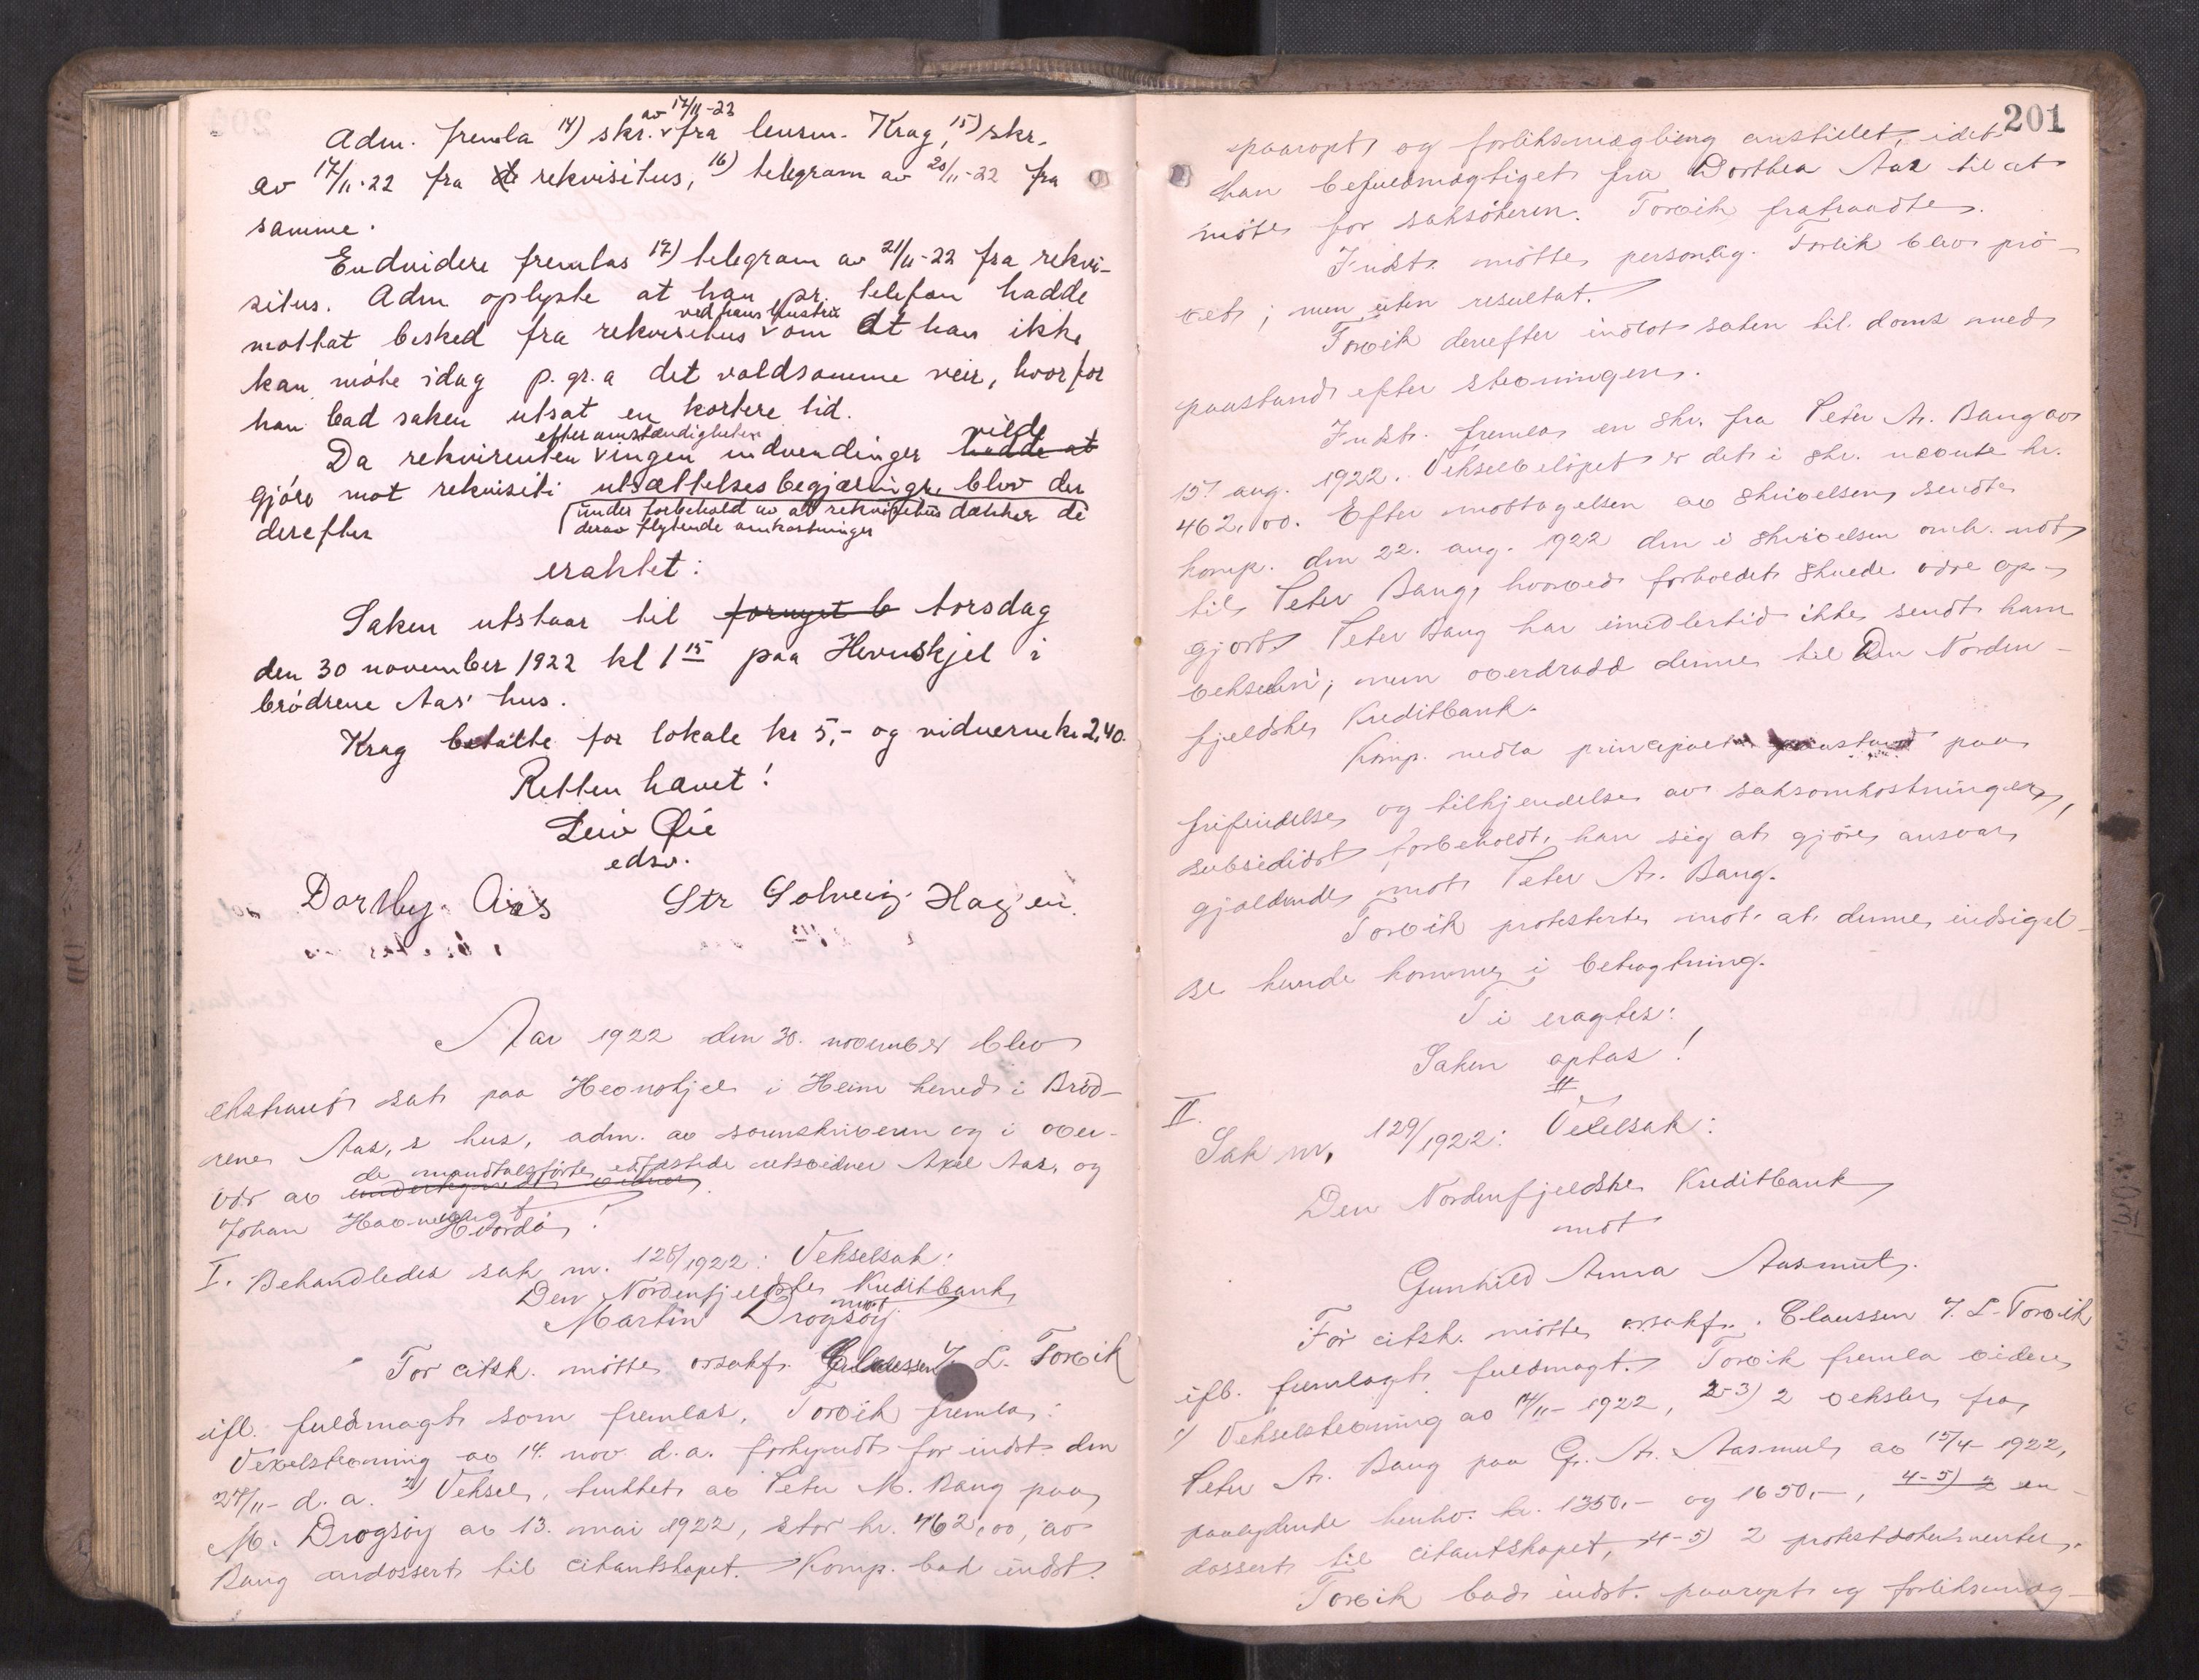 Adm. fremla 14) skr. av 17/11-22 fra lensm. Krag, 15) skr.
av 17/11-22 fra rekvisitus, 16) telegram av 20/11-22 fra
samme.
Endvidere fremlas 17) telegram av 21/11-22 fra rekvi-
situs. Adm oplyste at han pr. telefon hadde
mottat besked fra rekvisitus ved hans hustru om at han ikke
kan møte idag p.gr.a det voldsomme veir, hvorfor
han bad saken utsat en kortere tid.
Da rekvirenten efter omstændigheten ingen indvendinger hadde at vilde
gjøre mot rekvisiti utsættelsesbegjæring, blev der
(under forbehold av at rekvisitus dækker de
derav flytende omkostninger
derefter
eraktet:
Saken utstaar til fornyet b torsdag
den 30 november 1922 kl 1 15 paa Hevnskjel i
brødrene Aas' hus.
Krag betalte for lokale kr 5,- og vidnerne kr 2,40.
Retten hævet!
Leiv Øie
edsv.
Dorthy. Aas Str Solveig Hagen.
Aar 1922 den 30. november blev
ekstraret sat paa Hevnskjel i Heim herred i Brød-
rene Aas,s hus, adm. av sorenskriveren og i over-
vær av de mandtalsførte, edfæstede retsvidner Axel Aas, og
undertegnede vidner
Johan Havnvaagt
!
I. Behandledes sak nr. 128/1922: Vekselsak:
Den Nordenfjeldske Kreditbank
mot
Martin Drogsøy
For citsk. møtte orsakf. Claussen v. L. Torvik
ifl. fuldmagt som fremlas. Torvik fremla:
Vexelstevning av 14. nov. d.a. forkyndt for indst. den
27/11- d.a. 2) Veksel, trukket av Peter M. Bang paa
M. Drogsøy av 13. mai 1922, stor kr. 462,00, av
Bang endossert til citantskapet. Komp. bad indst.
201
paaropt og forliksmægling anstillet, idet
han befuldmægtiget fru Dorthea Aas til at
møte for saksøkeren. Torvik fratraadte.
Indst. møtte personlig. Forlik blev prø-
vet; men uten resultat.
Torvik derefter indlot saken til doms med
paastand efter stevningen.
Indst. fremla en skr. fra Peter A. Bang av
15. aug. 1922. Vekselbeløpet er det i skr. nævnte kr.
462,00. Efter mottagelsen av skrivelsen sendte
komp. den 22. aug. 1922 den i skrivelsen omh. not
til Peter Bang, hvorved forholdet skulde være op-
gjort. Peter Bang har imidlertid ikke sendt ham
vekselen; men overdradd denne til Den Norden-
fjeldske Kreditbank.
Komp. nedla principalt paastand paa
frifindelse og tilkjendelse av saksomkostninger,
subsidiært forbeholdt han sig at gjøre ansvar
gjældende mot Peter A. Bang.
Torvik protesterte mot at denne indsigel-
se kunde komme i betragtning.
Ti eragtes:
Saken optas!
II.
Sak nr. 129/1922: Vexelsak:
Den Nordenfjeldske Kreditbank
mot
Gunhild Anna Aasmul.
For citsk. møtte orsakf. Claussen v. L. Torvik
ifl. fremlagt fuldmagt. Torvik fremla videre
1) Vekselstevning av 14/11- 1922, 2-3) 2 veksler fra
Peter A. Bang paa G. A. Aasmul av 15/4- 1922,
paalydende henhv. kr. 1350,- og 1650,-, 4-5) 2 en-
dossert til citantskapet, 4-5) 2 protestdokumenter.
Torvik bad indst. paaropt og forliksmæg-